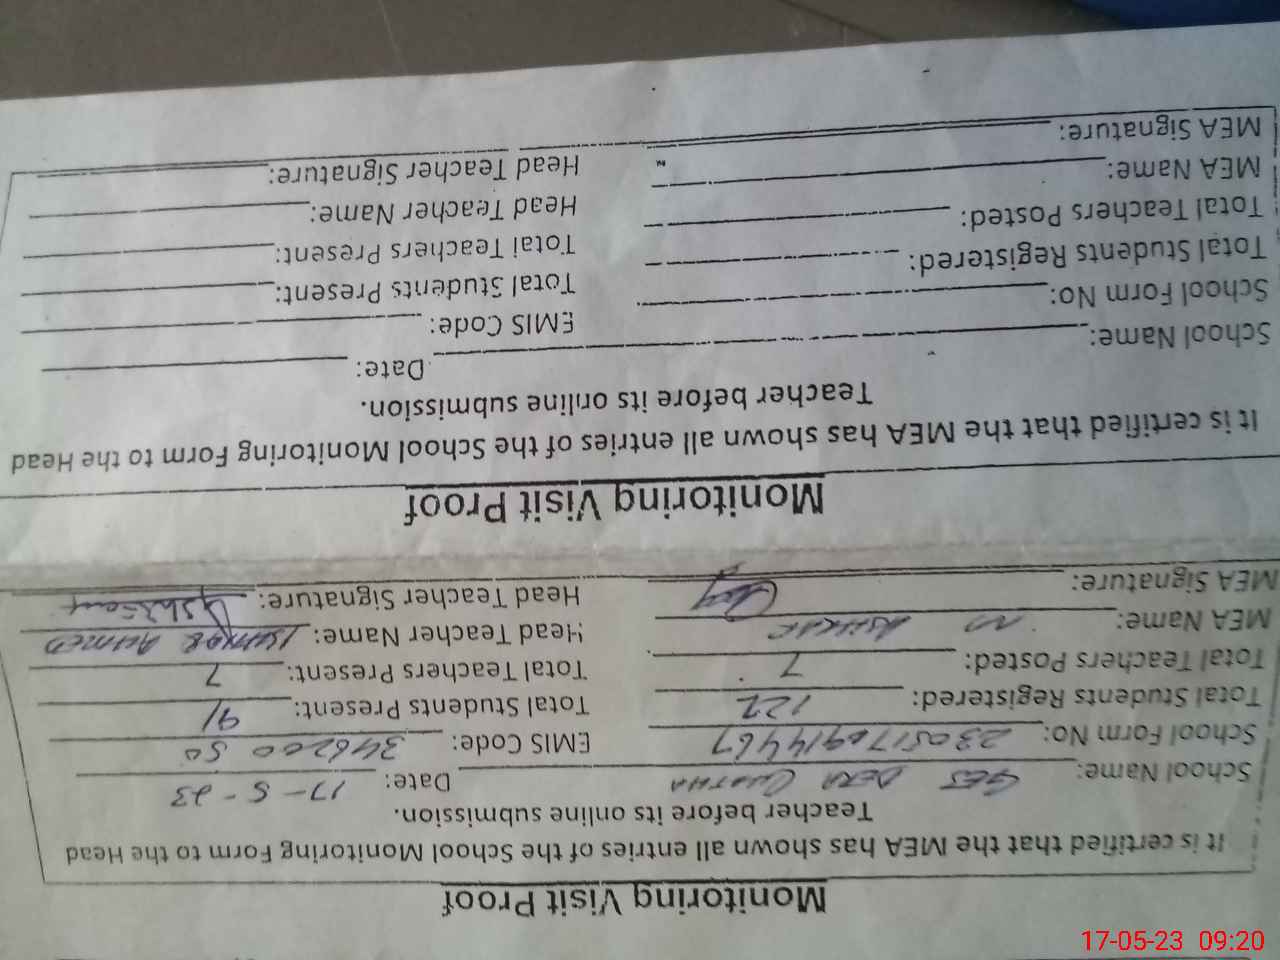 Monitoring Visit Proof
It is certified that the MEA has shown all entries of the School Monitoring Form to the Head
Teacher before its online submission.
School Name: GES DERA Date: 17-5-23
School Form No: 230517091446 EMIS Code: 34620050
Total Students Registered: 122 Total Students Present: 91
Total Teachers Posted: 7 Total Teachers Present: 7
MEA Name: M ASHKAR Head Teacher Name: AHMED
MEA Signature: Head Teacher Signature:
Monitoring Visit Proof
It is certified that the MEA has shown all entries of the School Monitoring Form to the Head
Teacher before its online submission.
School Name: Date:
School Form No: EMIS Code:
Total Students Registered: Total Students Present:
Total Teachers Posted: Total Teachers Present:
MEA Name: Head Teacher Name:
MEA Signature: Head Teacher Signature:
17-05-23 09:20